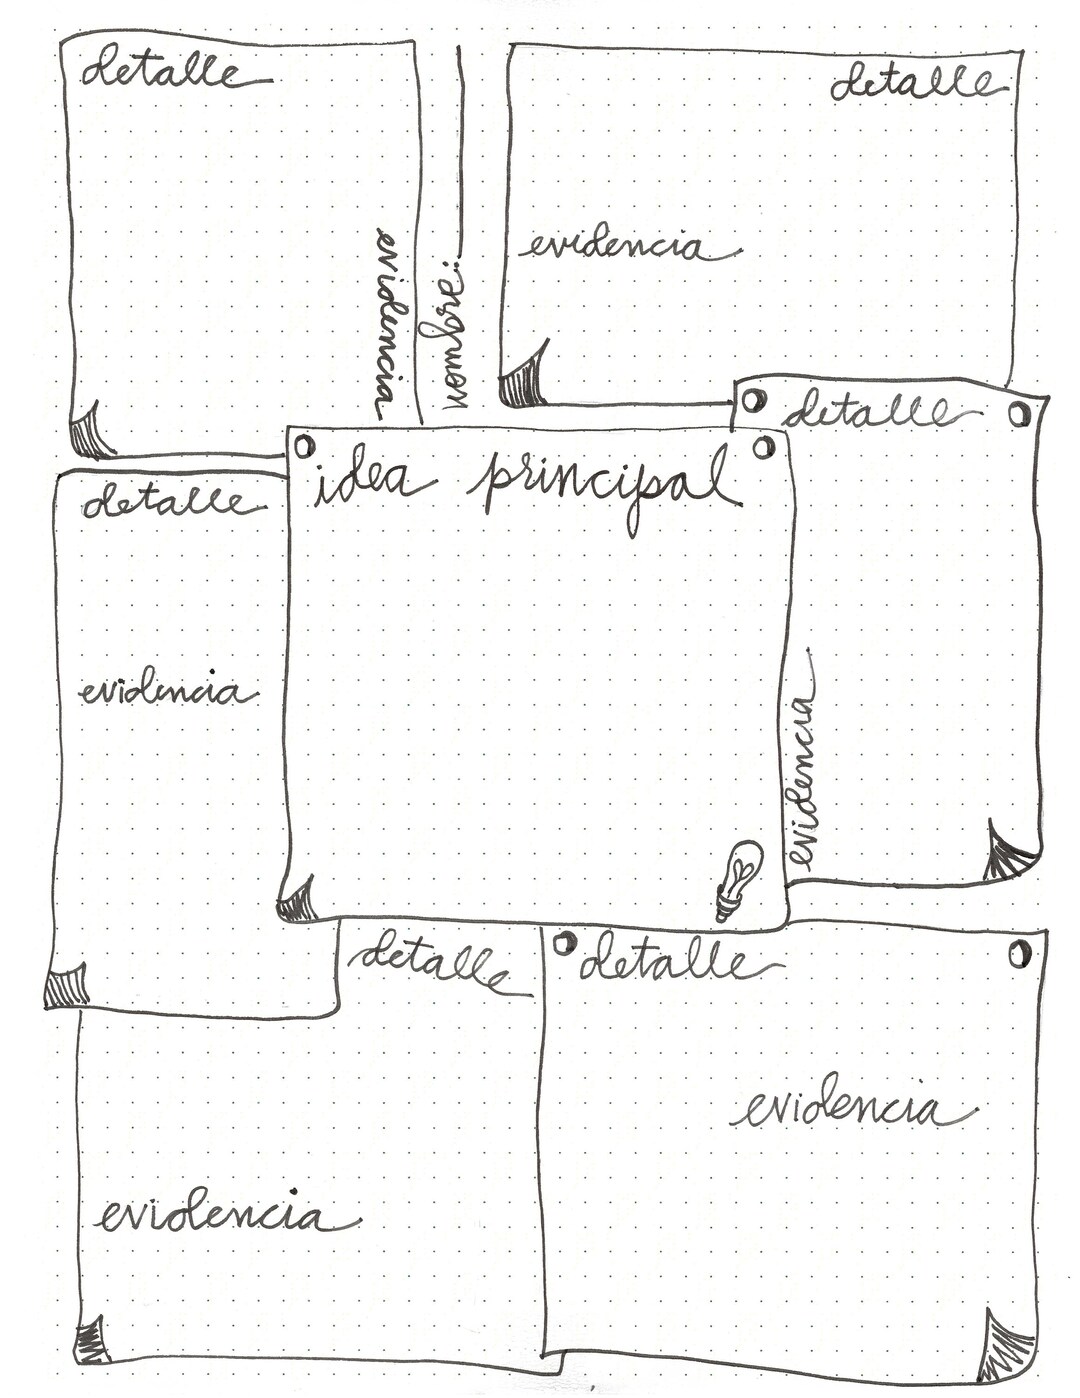 detalle
evidencia
nombre:
detalle
evidencia
idea principal
detalle
evidencia
detalle
evidencia
detalle
evidencia
detalle
evidencia